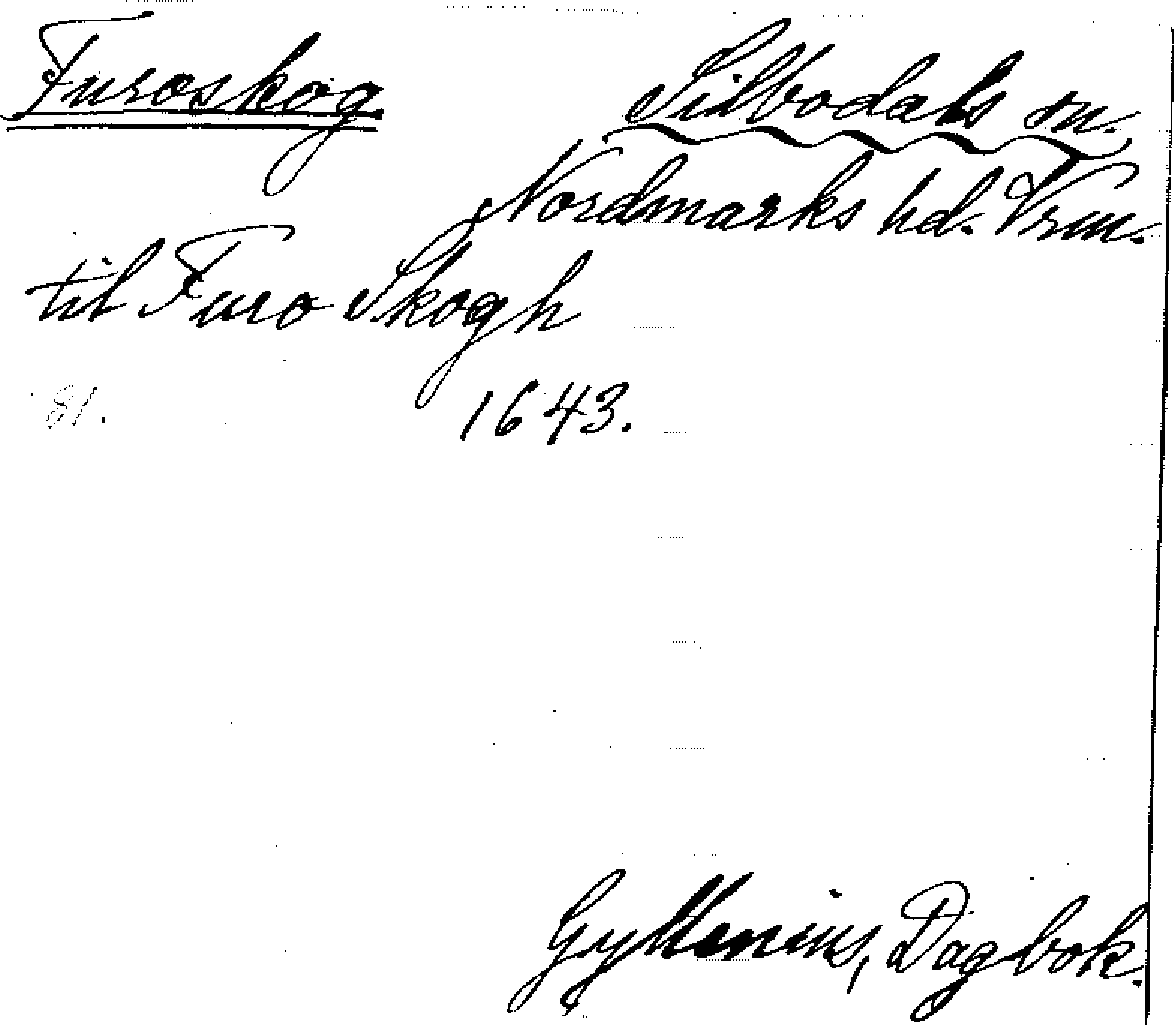 Furoskog
Silbodals sn.
Nordmarks hd. Vrm.
til Furo Skogh
81. 1643.
Gyllenius, Dagbok.